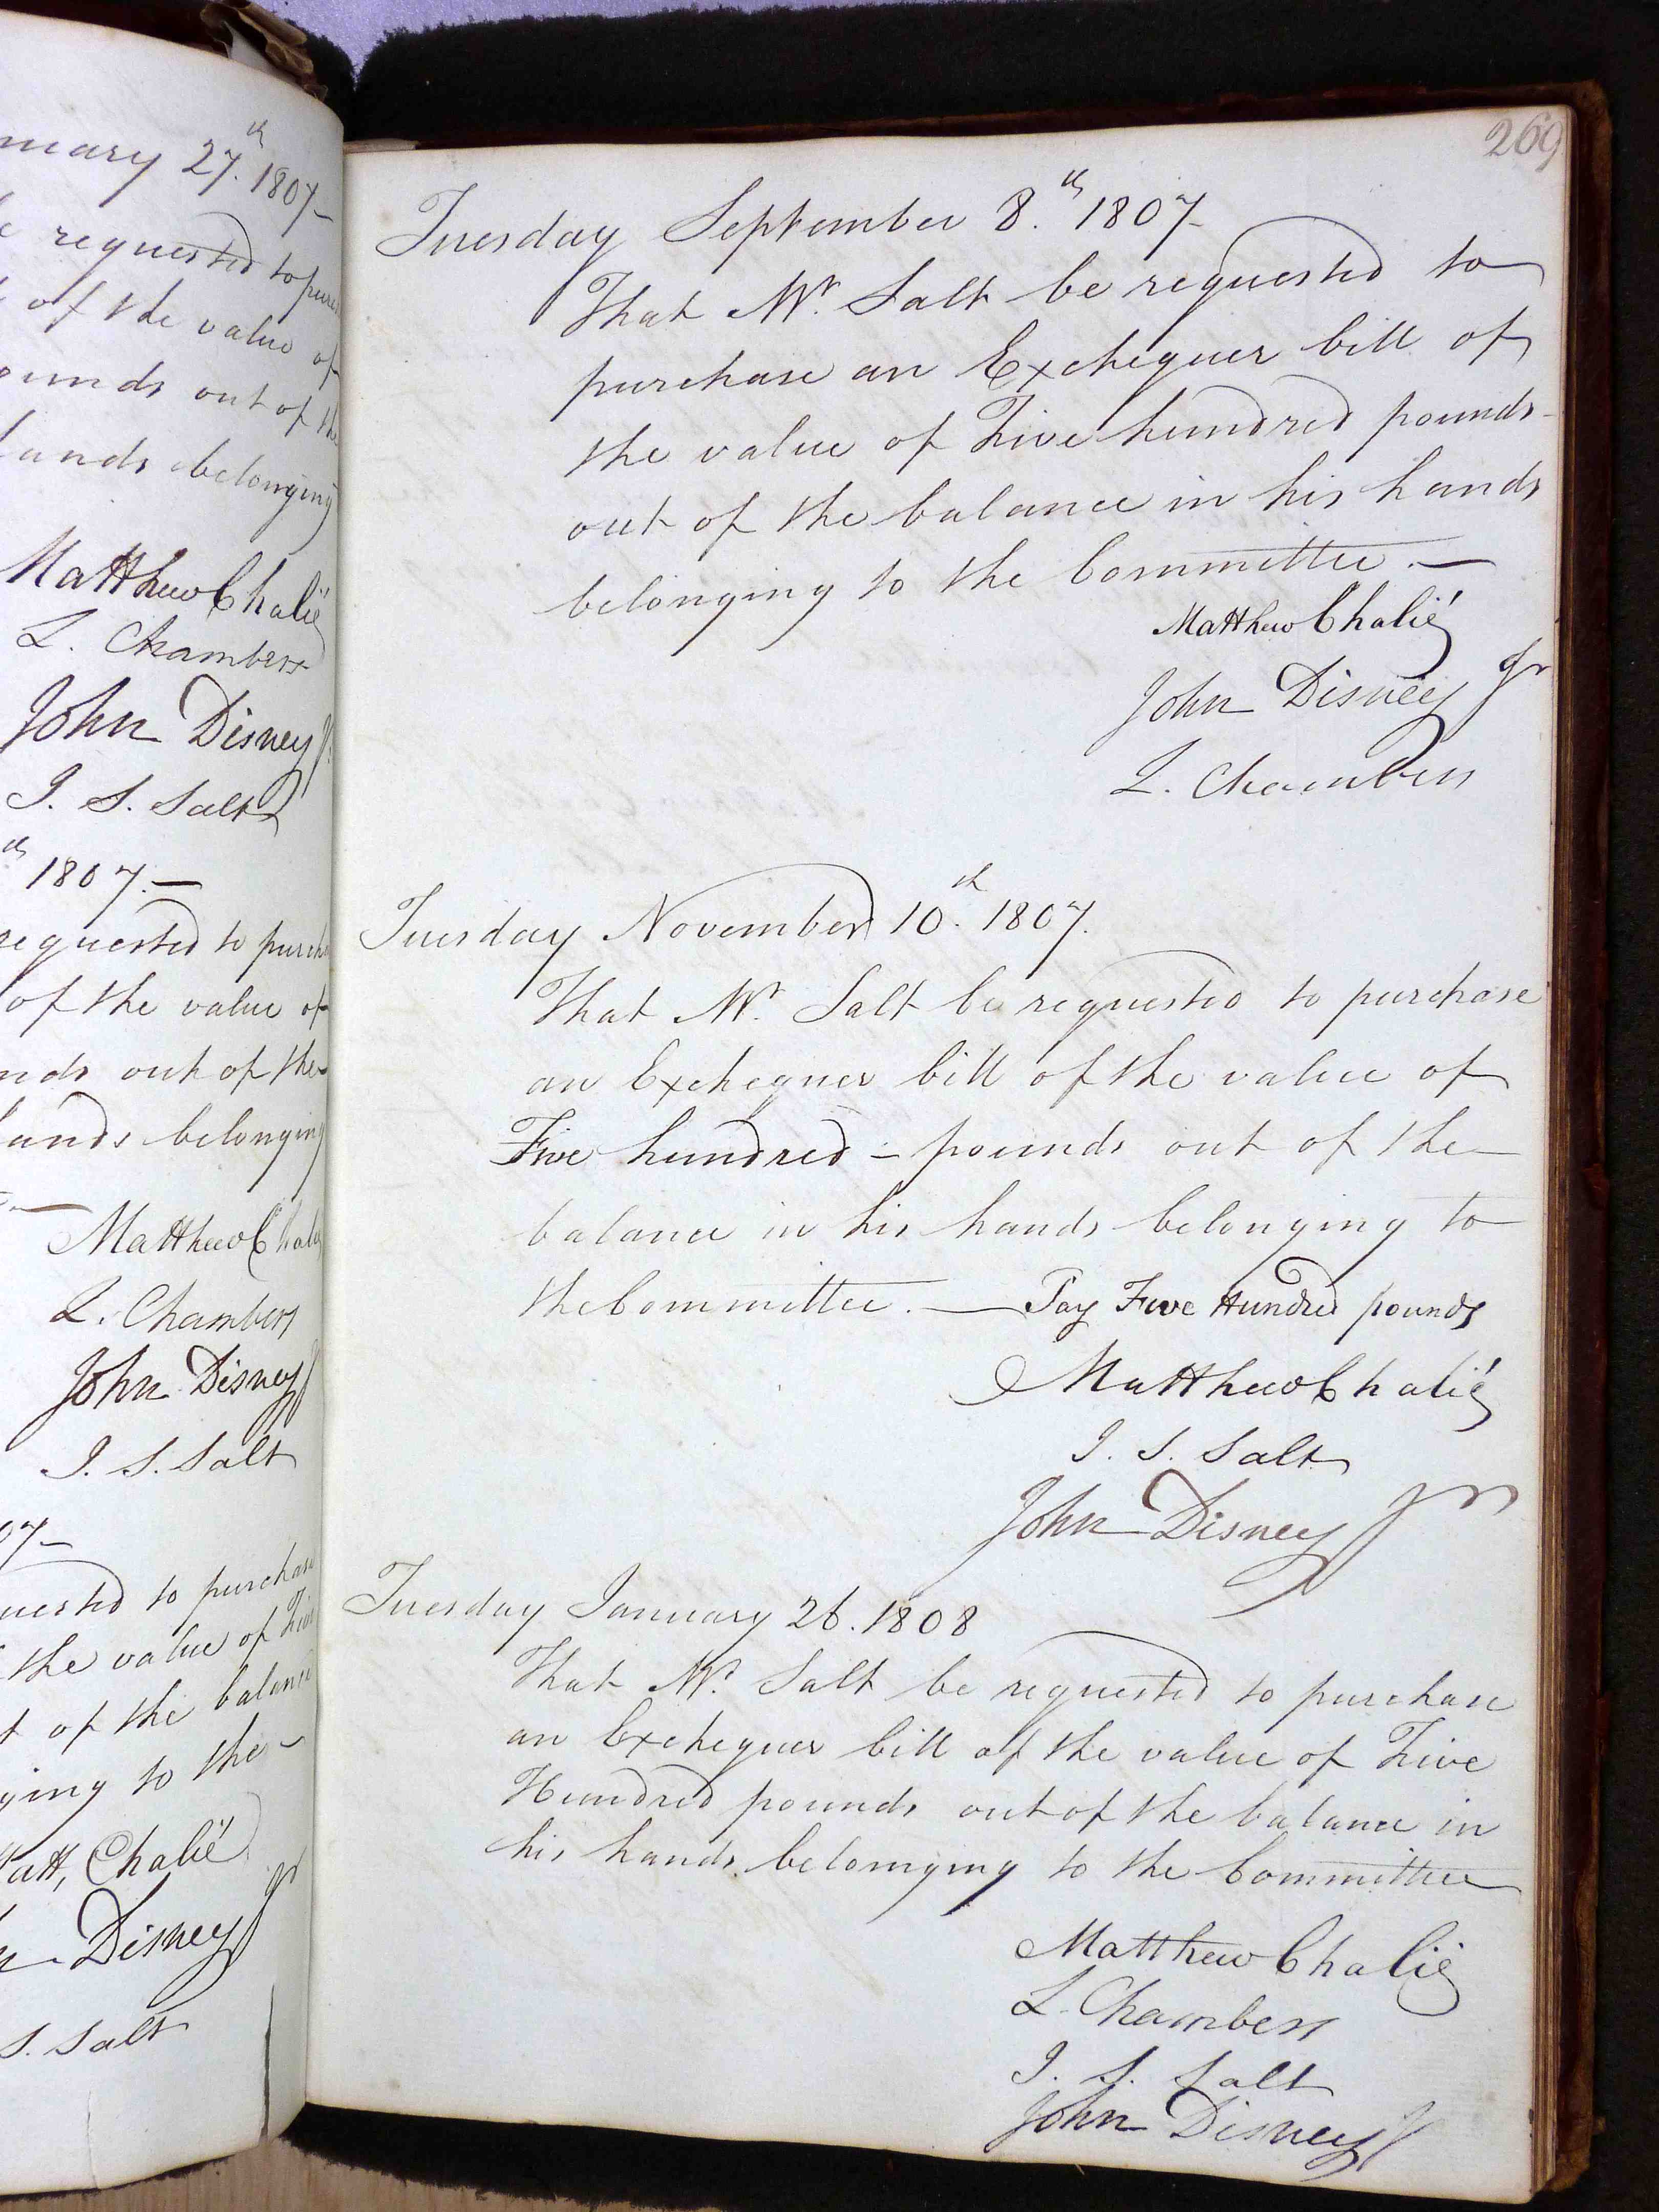 nuary 27.th 1807-
requested to purc
of the value of
ounds out of the
hands belonging
Matthew Chalié
L. Chambers
John Disney Jr.
J. S. Salt
th 1807.—
requested to purcha
of the value of
nds out of the
hands belonging
Matthew Chalié
L. Chambers
John Disney Jr
J. S. Salt
07-
uested to purchase
the value of Five
t of the balance
ging to the-
Matt, Chalié
n Disney Jr
S. Salt
269
Tuesday September 8.th 1807-
That Mr. Salt be requested to
purchase an Exchequer bill of
the value of Five hundred pounds-
out of the balance in his hands
belonging to the Committee.—
Matthew Chalié
John Disney Jr
L. Chambers
Tuesday November 10.th 1807.
That Mr. Salt be requested to purchase
an Exchequer bill of the value of
Five hundred - pounds out of the-
balance in his hands belonging to
the Committee.— Say Five Hundred pounds
Matthew Chalié
J. S. Salt
John Disney Jr
Tuesday January 26. 1808
That Mr. Salt be requested to purchase
an Exchequer bill of the value of Five
Hundred pounds out of the balance in
his hands belonging to the Committee
Matthew Chalié
L. Chambers
J. S. Salt
John Disney Jr